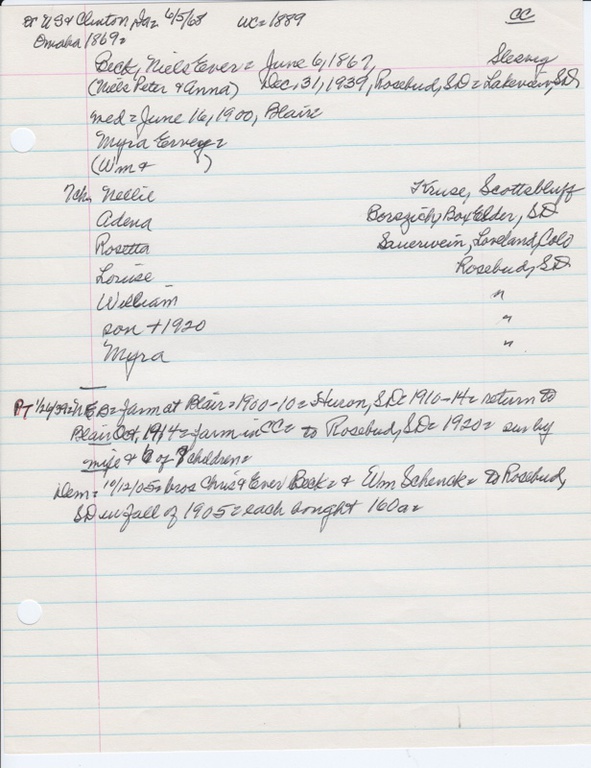 or US & Clinton, Ia = 6/5/68 WC = 1889 CC
Omaha 1869 =
Beck, Niels Ever = June 6, 1867, Slesvig
(Niels Peter & Anna) Dec. 31, 1939, Rosebud, SD = Lakeview, SD
med = June 16, 1900, Blair
Myra Ervey =
(Wm & )
7ch. Nellie Kruse, Scottsbluff
Adena Borszich, Box Elder, SD
Rosetta Sauerwein, Loveland, Colo
Louise Rosebud, SD
William "
son + 1920 "
Myra "
PT 1/26/39 = NEB = farm at Blair = 1900-10 = Huron, SD = 1910-14 = return to
Blair Oct, 1914 = farm in CC = to Rosebud, SD = 1920 = sur by
wife & 6 of children =
Dem = 10/12/05 = bros Chris & Ever Beck = & Wm Schenck = to Rosebud,
SD in fall of 1905 = each bought 160a =